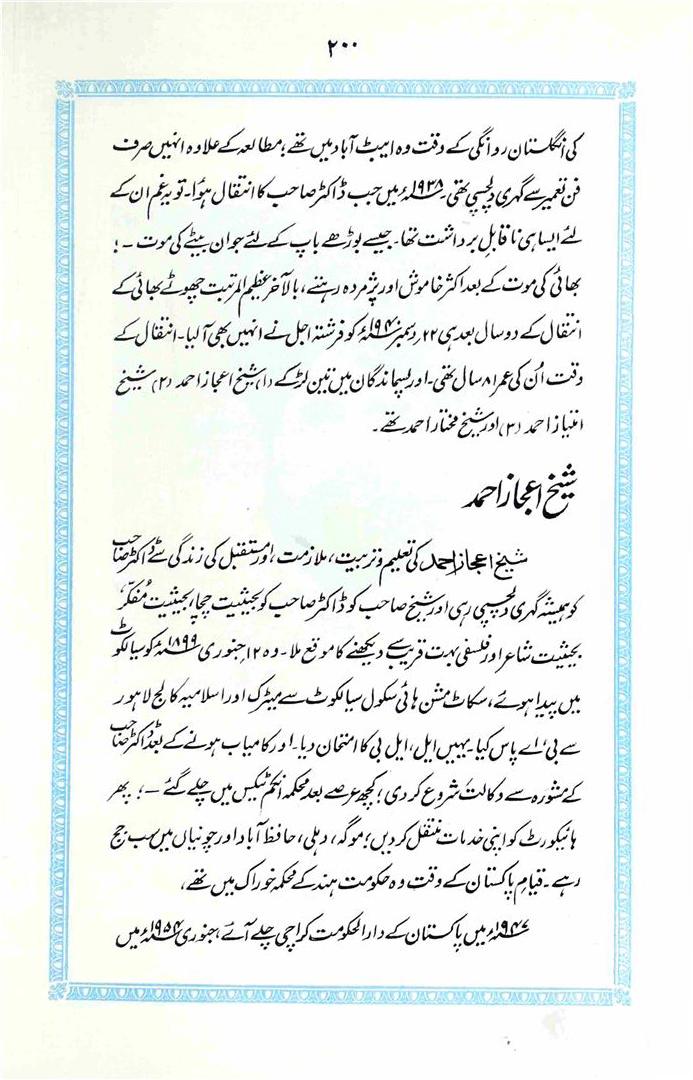 ۲۰۰
کی انگلستان روانگی کے وقت وہ ایبٹ آباد میں تھے؛ مطالعہ کے علاوہ انہیں صرف
فن تعمیر سے گہری دلچسپی تھی۔ ۱۹۳۸ء میں جب ڈاکٹر صاحب کا انتقال ہؤا۔ تو یہ غم ان کے
لئے ایسا ہی ناقابلِ برداشت تھا۔ جیسے بوڑھے باپ کے لئے جوان بیٹے کی موت ۔ ؛
بھائی کی موت کے بعد اکثر خاموش اور پژمردہ رہتے، بالآخر عظیم المرتبت چھوٹے بھائی کے
انتقال کے دو سال بعد ہی ۲۲؍ دسمبر ۱۹۴۰ء کو فرشتہ اجل نے انہیں بھی آ لیا۔ انتقال کے
وقت اُن کی عمر ۸۱ سال تھی۔ اور پسماندگان میں تین لڑکے (۱) شیخ اعجاز احمد (۲) شیخ
امتیاز احمد (۳) اور شیخ مختار احمد تھے۔
شیخ اعجاز احمد
شیخ اعجاز احمد کی تعلیم و تربیت، ملازمت، اور مستقبل کی زندگی سے ڈاکٹر صاحب
کو ہمیشہ گہری دلچسپی رہی اور شیخ صاحب کو ڈاکٹر صاحب کو بحیثیت چچا، بحیثیت مُفکّر،
بحیثیت شاعر اور فلسفی بہت قریب سے دیکھنے کا موقع ملا۔ وہ ۱۲؍ جنوری ۱۸۹۹ء کو سیالکوٹ
میں پیدا ہوئے، سکاٹ مشن ہائی سکول سیالکوٹ سے میٹرک اور اسلامیہ کالج لاہور
سے بی، اے پاس کیا۔ یہیں ایل، ایل بی کا امتحان دیا۔ اور کامیاب ہونے کے بعد ڈاکٹر صاحب
کے مشورہ سے وکالت شروع کر دی؛ کچھ عرصے بعد محکمہ انکم ٹیکس میں چلے گئے ۔ ؛ پھر
ہائیکورٹ کو اپنی خدمات منتقل کر دیں؛ موگہ، دہلی، حافظ آباد اور چونیاں میں سب جج
رہے۔ قیامِ پاکستان کے وقت وہ حکومت ہند کے محکمہ خوراک میں تھے،
۱۹۴۷ء میں پاکستان کے دارالحکومت کراچی چلے آئے، جنوری ۱۹۵۴ء میں